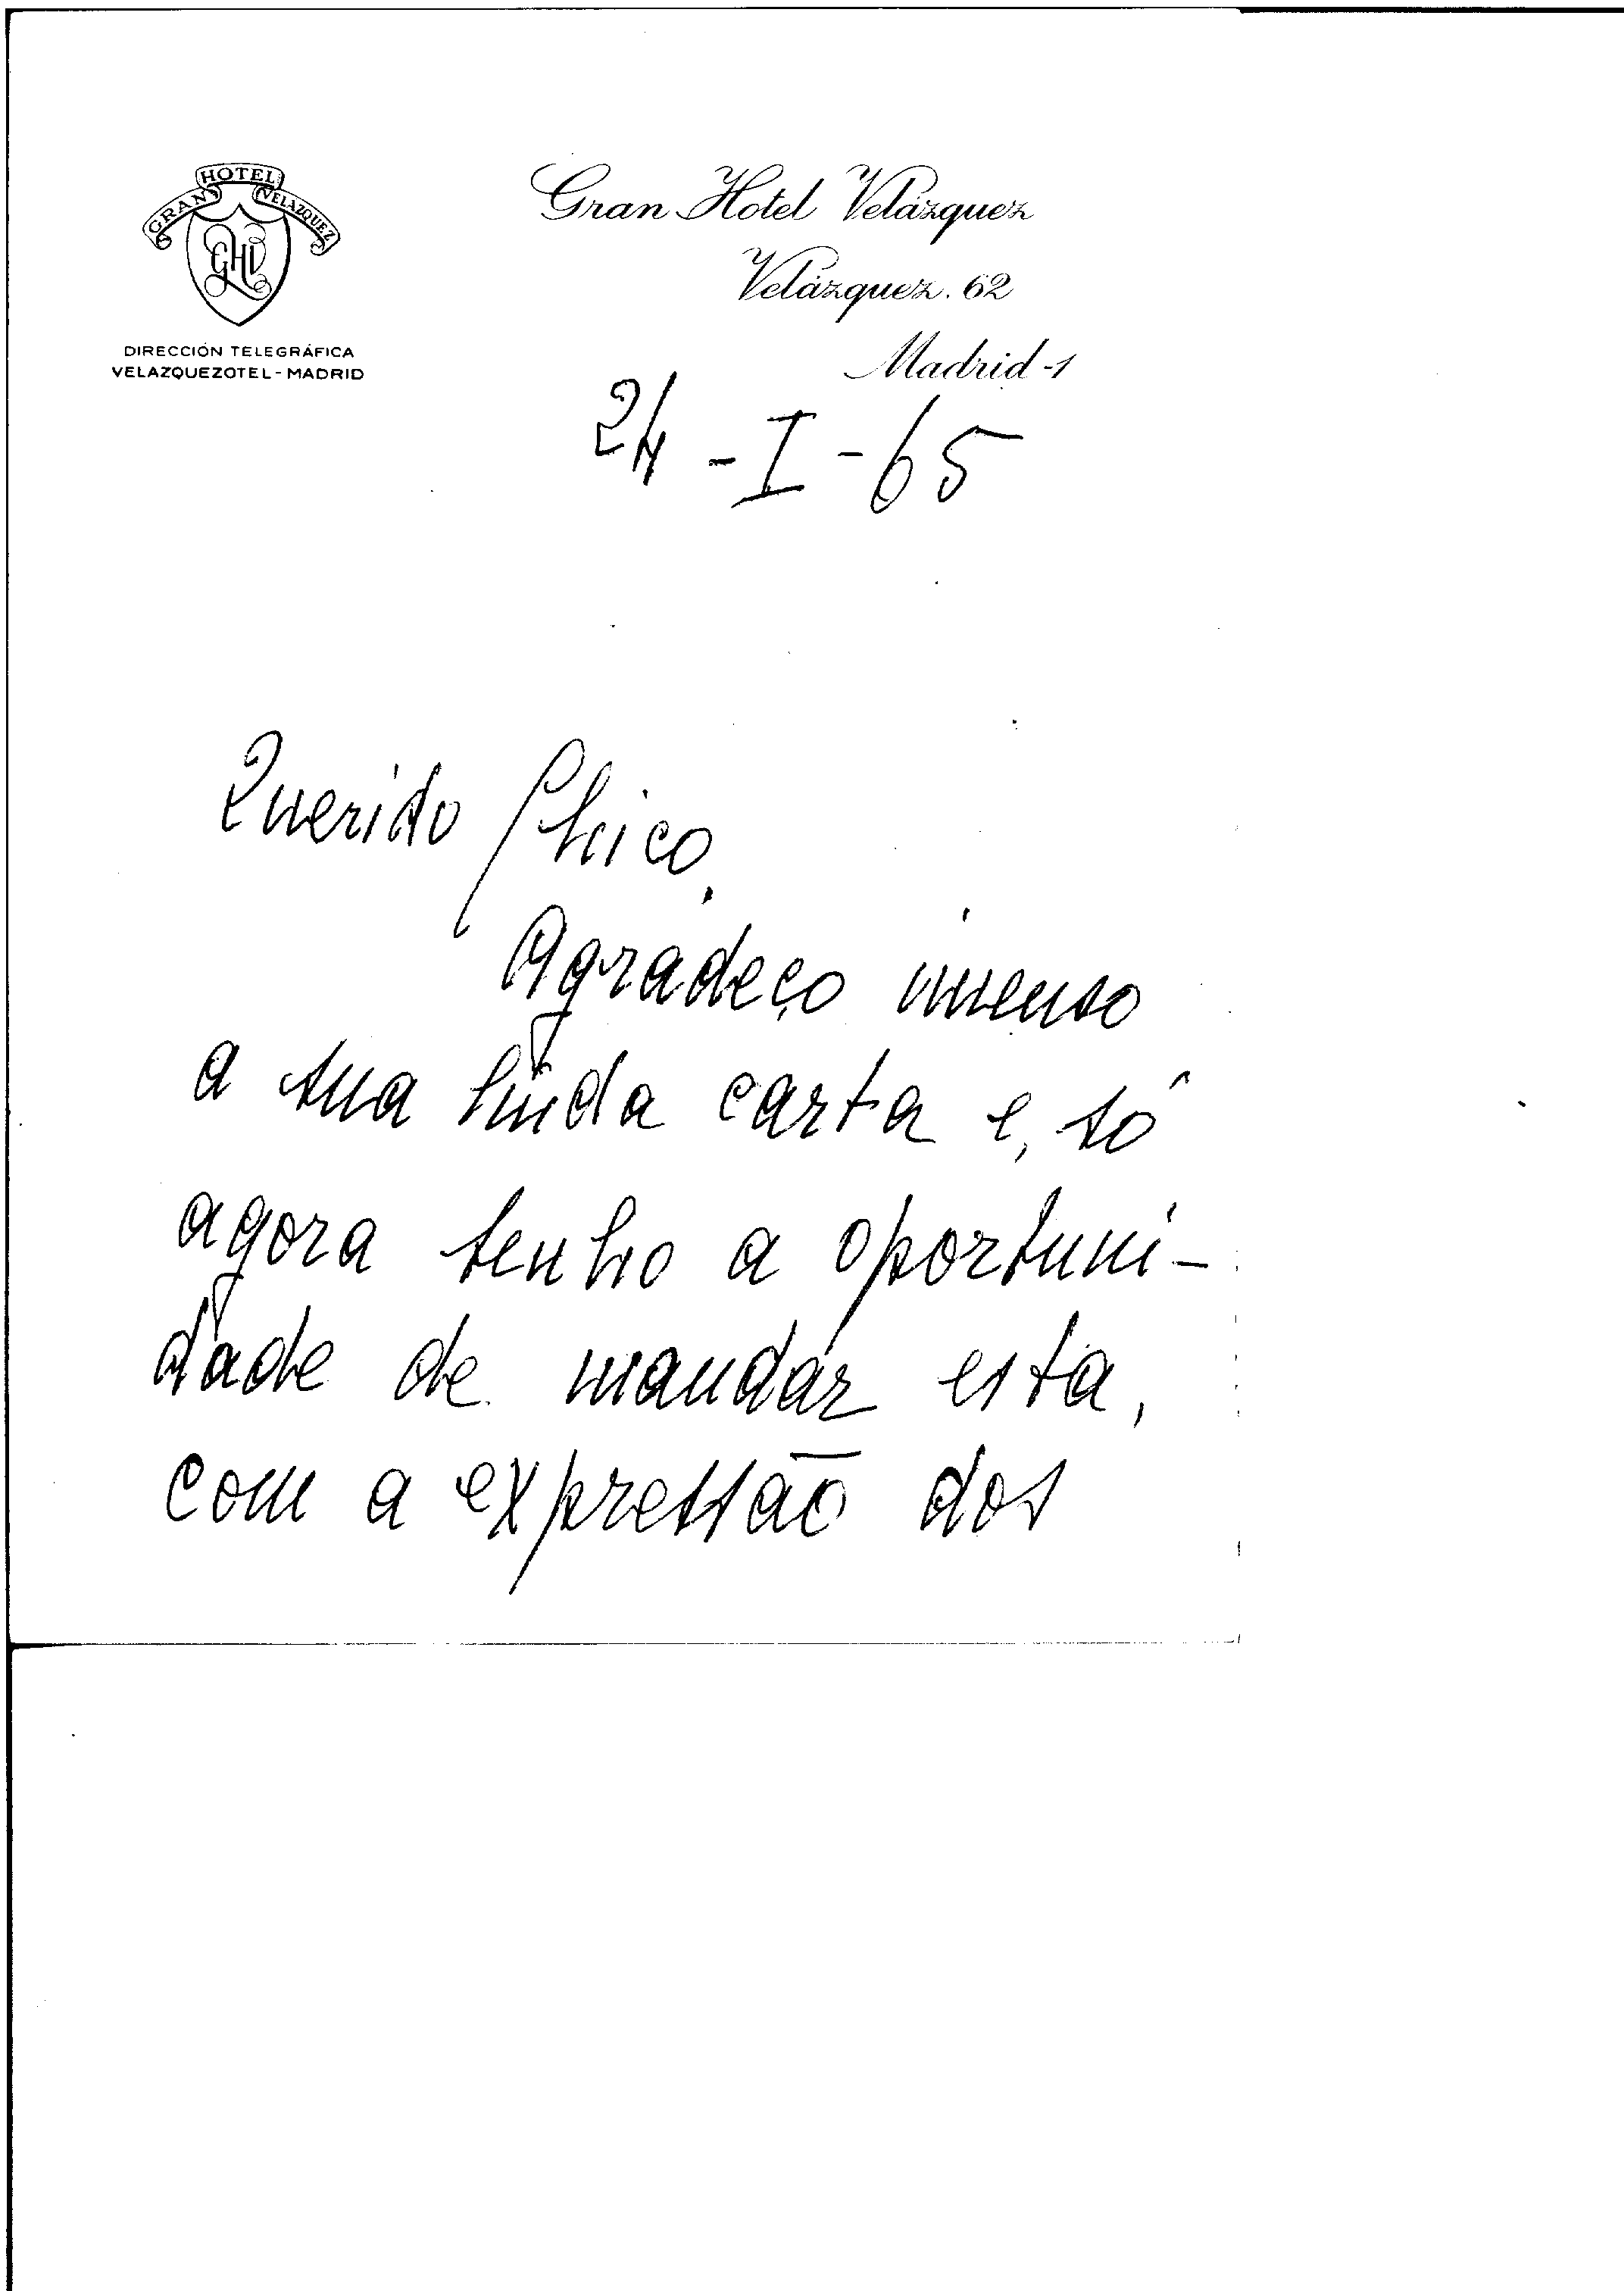 GRAN HOTEL VELAZQUEZ
GHV
DIRECCIÓN TELEGRÁFICA
VELAZQUEZOTEL - MADRID
Gran Hotel Velázquez
Velázquez. 62
Madrid-1
24-I-65
Querido Chico,
Agradeço imenso
a sua linda carta e, só
agora tenho a oportuni-
dade de mandar esta,
com a expressão dos